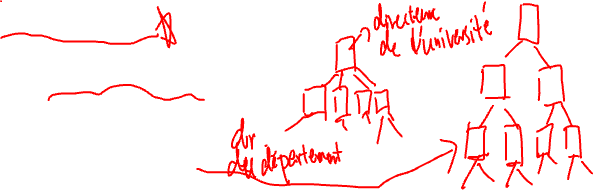 directeur
de l'université
dir
du département